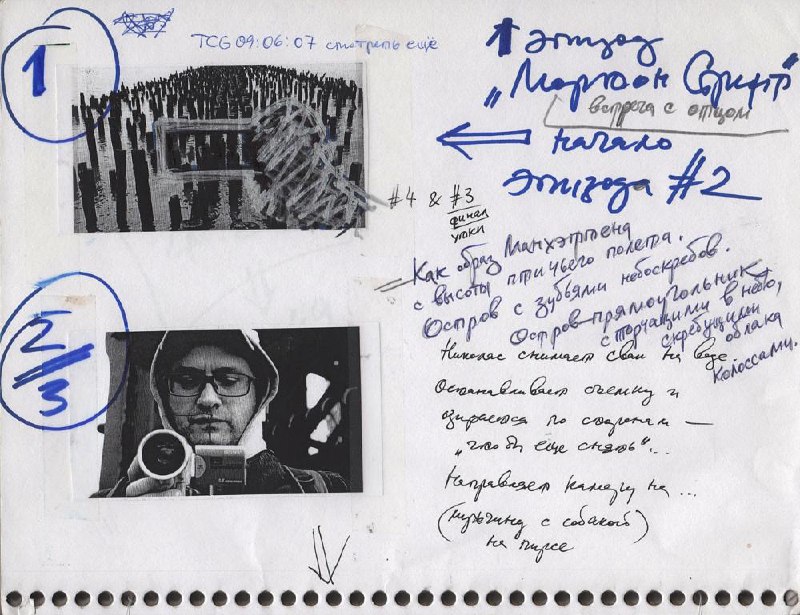 1
TCG 09:06:07 смотреть ещё
1 эпизод
„Мортон Стрит“
встреча с отцом
начало
эпизода #2
#4 & #3
финал
утки
Как образ Манхэттена
с высоты птичьего полета.
Остров с зубьями небоскребов.
Остров-прямоугольник
с торчащими в небо,
скребущими
облака
Колоссами.
2/3
Николас снимает сваи на воде
Останавливает съемку и
озирается по сторонам —
„что бы ещё снять“...
Направляет камеру на...
(мужчину с собакой)
на пирсе